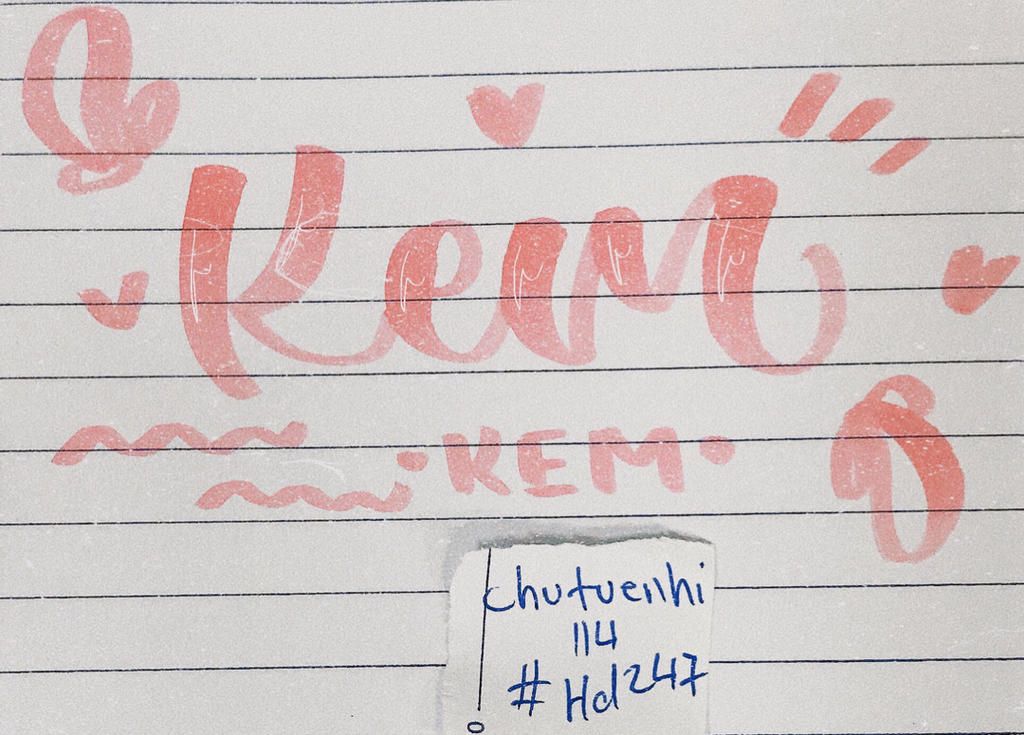 Kem
• KEM •
chutuenhi
114
# Hd247